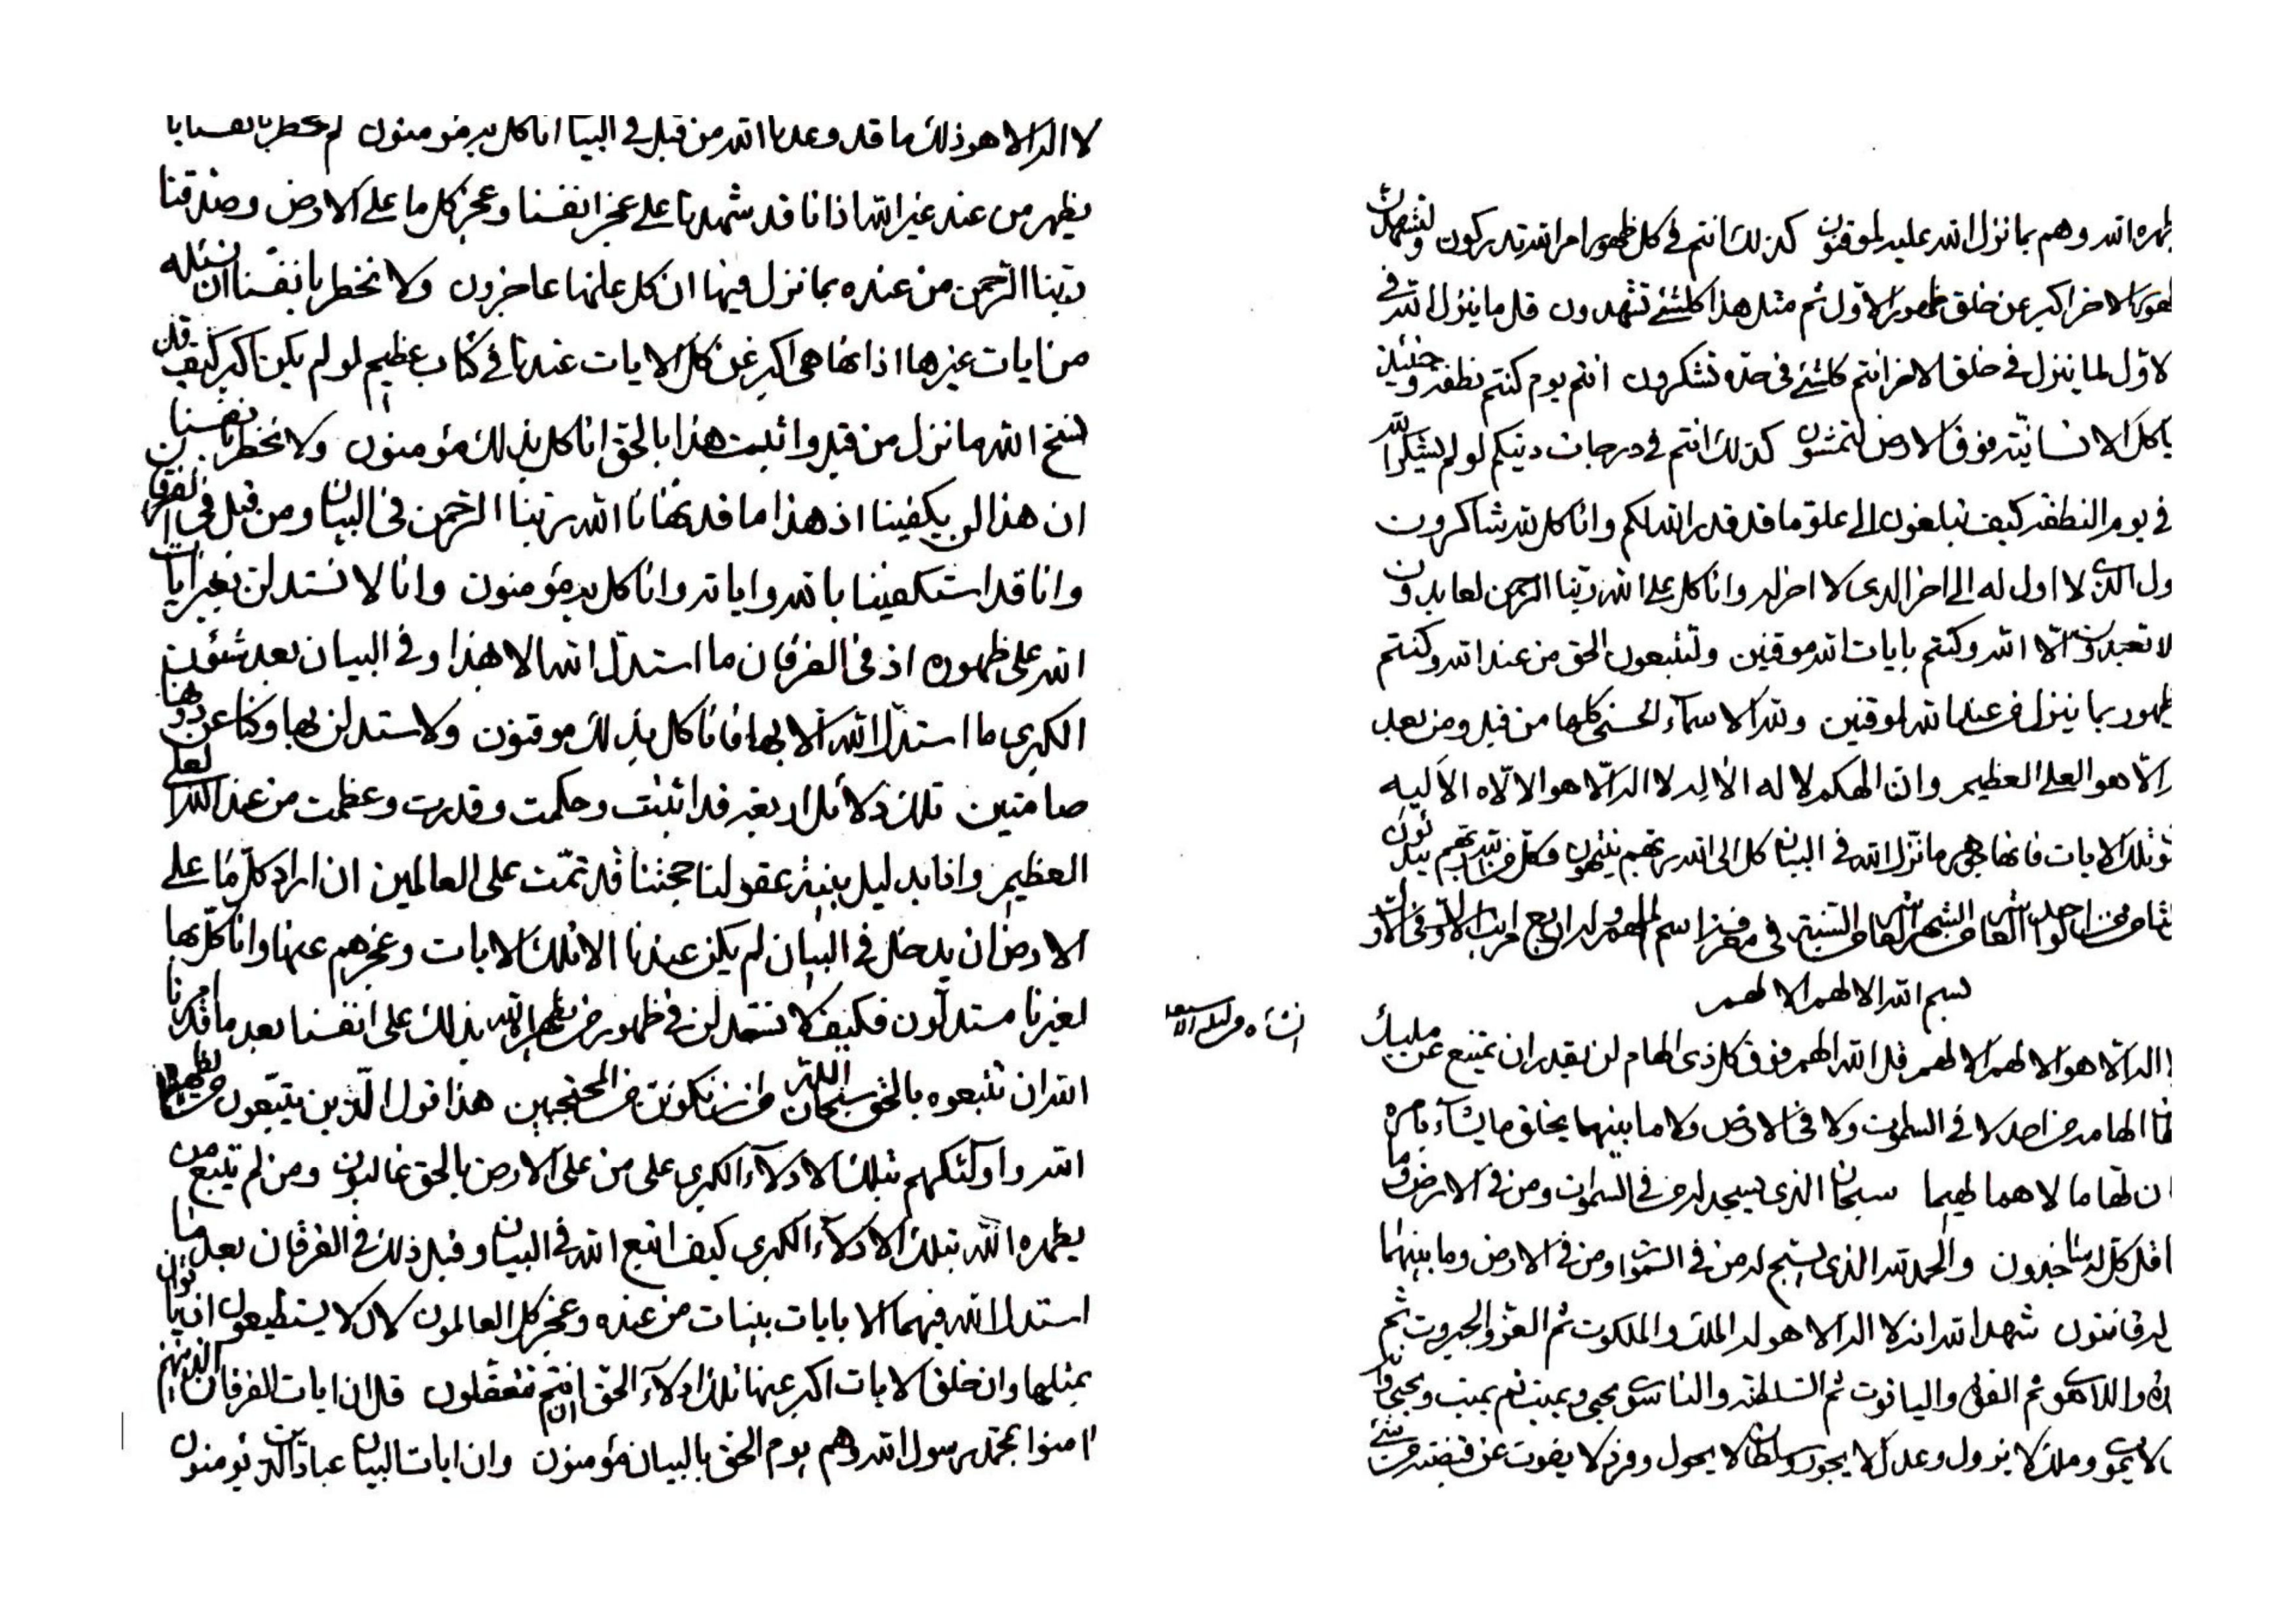 ظهره الله وهم بما نزل الله عليه لموقنون كذلك انتم في كل ظهور امر الله تدركون ولتشهدن
ظهور الاخر اكبر عن خلق ظهور الاول ثم مثل هذا كلشئ تشهدون قل ما ينزل الله في
لاول لما ينزل في خلق الاخر انتم كلشئ في حده تشكرون انتم يوم كنتم نطفة وحينئذ
كذلك انتم في درجات دينكم لو لم يشكر الله
في يوم النطفة كيف تبلغون الى علو ما قد قدر الله لكم وانا كل لله شاكرون
ول الذي لا اول له الى اخر الذي لا اخر له وانا كل على الله ربنا الرحمن لعابدون
لا تعبدون الا الله وكنتم بايات الله موقنين ولتتبعون الحق من عند الله وكنتم
ظهور بما ينزل من عند الله لموقنين ولله الاسماء الحسنى كلها من قبل ومن بعد
الا هو العلي العظيم وان الهكم لا له الا لاله لا اله الا هو الا لاه الا ليه
تلك الايات فانها هي ما نزل الله في البيان كل الى الله ربهم ينتهون وكل من الله ربهم يبدئون
بسم الله الالهم الالهم
اله الا هو الالهم الالهم قل الله الهم فوق كل ذي الهام لن يقدر ان يمتنع عن مليك
الهامه من احد لا في السموات ولا في الارض ولا ما بينهما يخلق ما يشاء بامره
سبحان الذي يسجد له من في السموات ومن في الارض وما
قل كل له ساجدون والحمد لله الذي يسبح له من في السموات ومن في الارض وما بينهما
له قانتون شهد الله انه لا اله الا هو له الملك والملكوت ثم العز والجبروت ثم
واللاهوت ثم القوة والياقوت ثم السلطنة والناسوت يحيي ويميت ثم يميت ويحيي وانه
لا يموت وملك لا يزول وعدل لا يجور وسلطان لا يحول وفرد لا يفوت عن قبضته من شئ
لا اله الا هو ذلك ما قد وعدنا الله من قبل في البيان انا كل به مؤمنون لم يخطر بانفسنا بان
يظهر من عند غير الله اذ انا قد شهدنا على عجز انفسنا وعجز كل ما على الارض وصدقنا
ربنا الرحمن من عنده بما نزل فيها ان كل عنها عاجزون ولا نخطر بانفسنا ان نسئله
من ايات غيرها اذ انها هي اكبر عن كل الايات عندنا في كتاب عظيم لو لم يكن اكبر كيف قد
نسخ الله ما نزل من قبل واثبت هذا بالحق انا كل بذلك مؤمنون ولا نخطر بانفسنا
ان هذا لن يكفينا اذ هذا ما قد نهانا الله ربنا الرحمن في البيان ومن قبل في الفرقان
وانا قد استكفينا بالله واياته وانا كل به مؤمنون وانا لا نستدلن بغير ايات
الله على ظهوره اذ في الفرقان ما استدل الله الا بهذا وفي البيان بعد شئون
الكبرى ما استدل الله الا بها فانا كل بذلك موقنون ولا نستدلن بها وكنا عن دونها
صامتين تلك دلائل اربعة قد اثبتت وحكمت وقدرت وعظمت من عند الله العلي
العظيم وانا بدليل بينة عقولنا حجتنا قد تمت على العالمين ان اراد كل ما على
الارض ان يدخل في البيان لم يكن عندنا الا تلك الايات وعجزهم عنها وانا كل بها
لغيرنا مستدلون فكيف لا نستدلن في ظهور من يظهره الله بذلك على انفسنا بعد ما قد امرنا
الله ان نتبعوه بالحق سبحان الله من ان نكونن من المحتجبين هذا قول الذين يتبعون من يظهره
الله واولئك هم بتلك الادلاء الكبرى على من على الارض بالحق غالبون ومن لم يتبع من
يظهره الله بتلك الادلاء الكبرى كيف اتبع الله في البيان وقبل ذلك في الفرقان بعد ما
استدل الله فيهما الا بايات بينات من عنده وعجز كل العالمون لان لا يستطيعون ان ياتون
بمثلها وان خلق الايات اكبر عنها تلك ادلاء الحق ان انتم تتعقلون قل ان ايات الفرقان الذينهم
امنوا بمحمد رسول الله وهم يوم الحق بالبيان مؤمنون وان ايات البيان عباد الذين يؤمنون